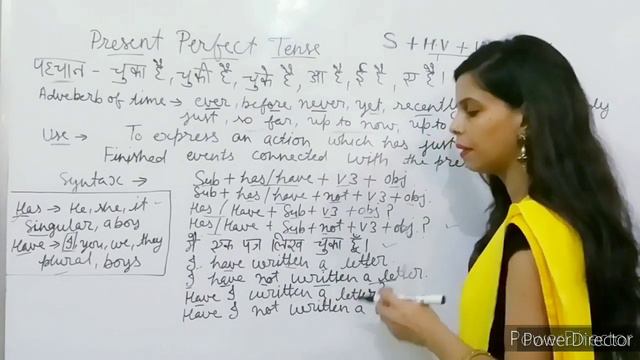 Present Perfect Tense S + HV +
पहचान - चुका है, चुकी है, चुके है, आ है, ई है, ए है।
Adveberb of time → ever, before never, yet, recently
just, so far, up to now, up to
Use → To express an action which has just
Finished events connected with the pre
Syntax → Sub + has/have + V3 + obj
Sub + has/have + not + V3 + obj.
Has/Have + Sub + V3 + obj ?
Has/Have + Sub + not + V3 + obj. ?
Has → He, she, it
Singular, a boy
Have → I, you, we, they
plural, boys
मैं एक पत्र लिख चुका हूँ।
I have written a letter.
I have not written a letter.
Have I written a letter
Have I not written a
PowerDirector